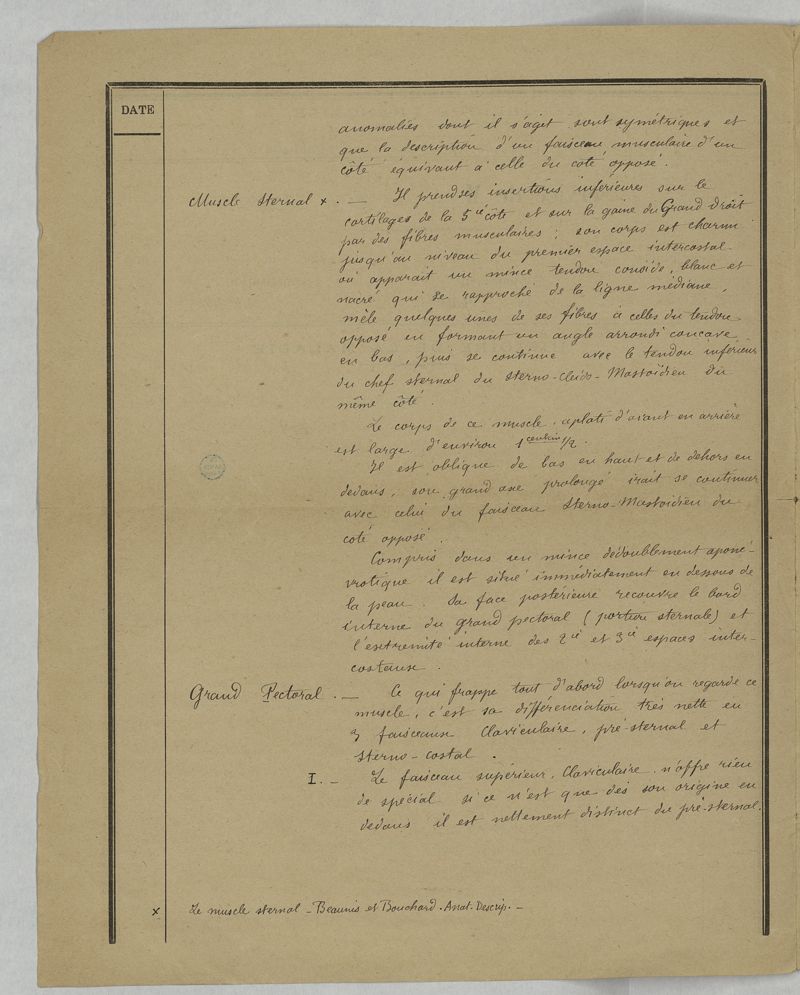 DATE
anomalies dont il s'agit sont symétriques et
que la description d'un faisceau musculaire d'un
côté équivaut à celle du coté opposé.
Muscle Sternal x . — Il prend ses insertions inférieures sur le
cartilages de la 5e côte et sur la gaine du Grand droit
par des fibres musculaires ; son corps est charnu
jusqu'au niveau du premier espace intercostal
où apparait un mince tendon conoïde, blanc et
nacré qui se rapproche de la ligne médiane,
mêle quelques unes de ses fibres à celles du tendon
opposé en formant un angle arrondi concave
en bas, puis se continue avec le tendon inférieur
du chef sternal du Sterno-Cleido-Mastoïdien du
même côté.
Le corps de ce muscle, aplati d'avant en arrière
est large d'environ 1 centim 1/2.
Il est oblique de bas en haut et de dehors en
dedans, son grand axe prolongé irait se continuer
avec celui du faisceau Sterno-Mastoïdien du
coté opposé.
Compris dans un mince dédoublement aponé-
vrotique il est situé immédiatement en dessous de
la peau. Sa face postérieure recouvre le bord
interne du grand pectoral (portion sternale) et
l'extremité interne des 2e et 3e espaces inter-
costaux.
Grand Pectoral . — Ce qui frappe tout d'abord lorsqu'on regarde ce
muscle, c'est sa différenciation très nette en
3 faisceaux Claviculaire, pré-sternal et
Sterno-costal.
I. — Le faisceau supérieur, Claviculaire, n'offre rien
de spécial si ce n'est que dès son origine en
dedans il est nettement distinct du pré-sternal.
x Le muscle sternal - Beaunis et Bouchard. Anat. Descrip. -